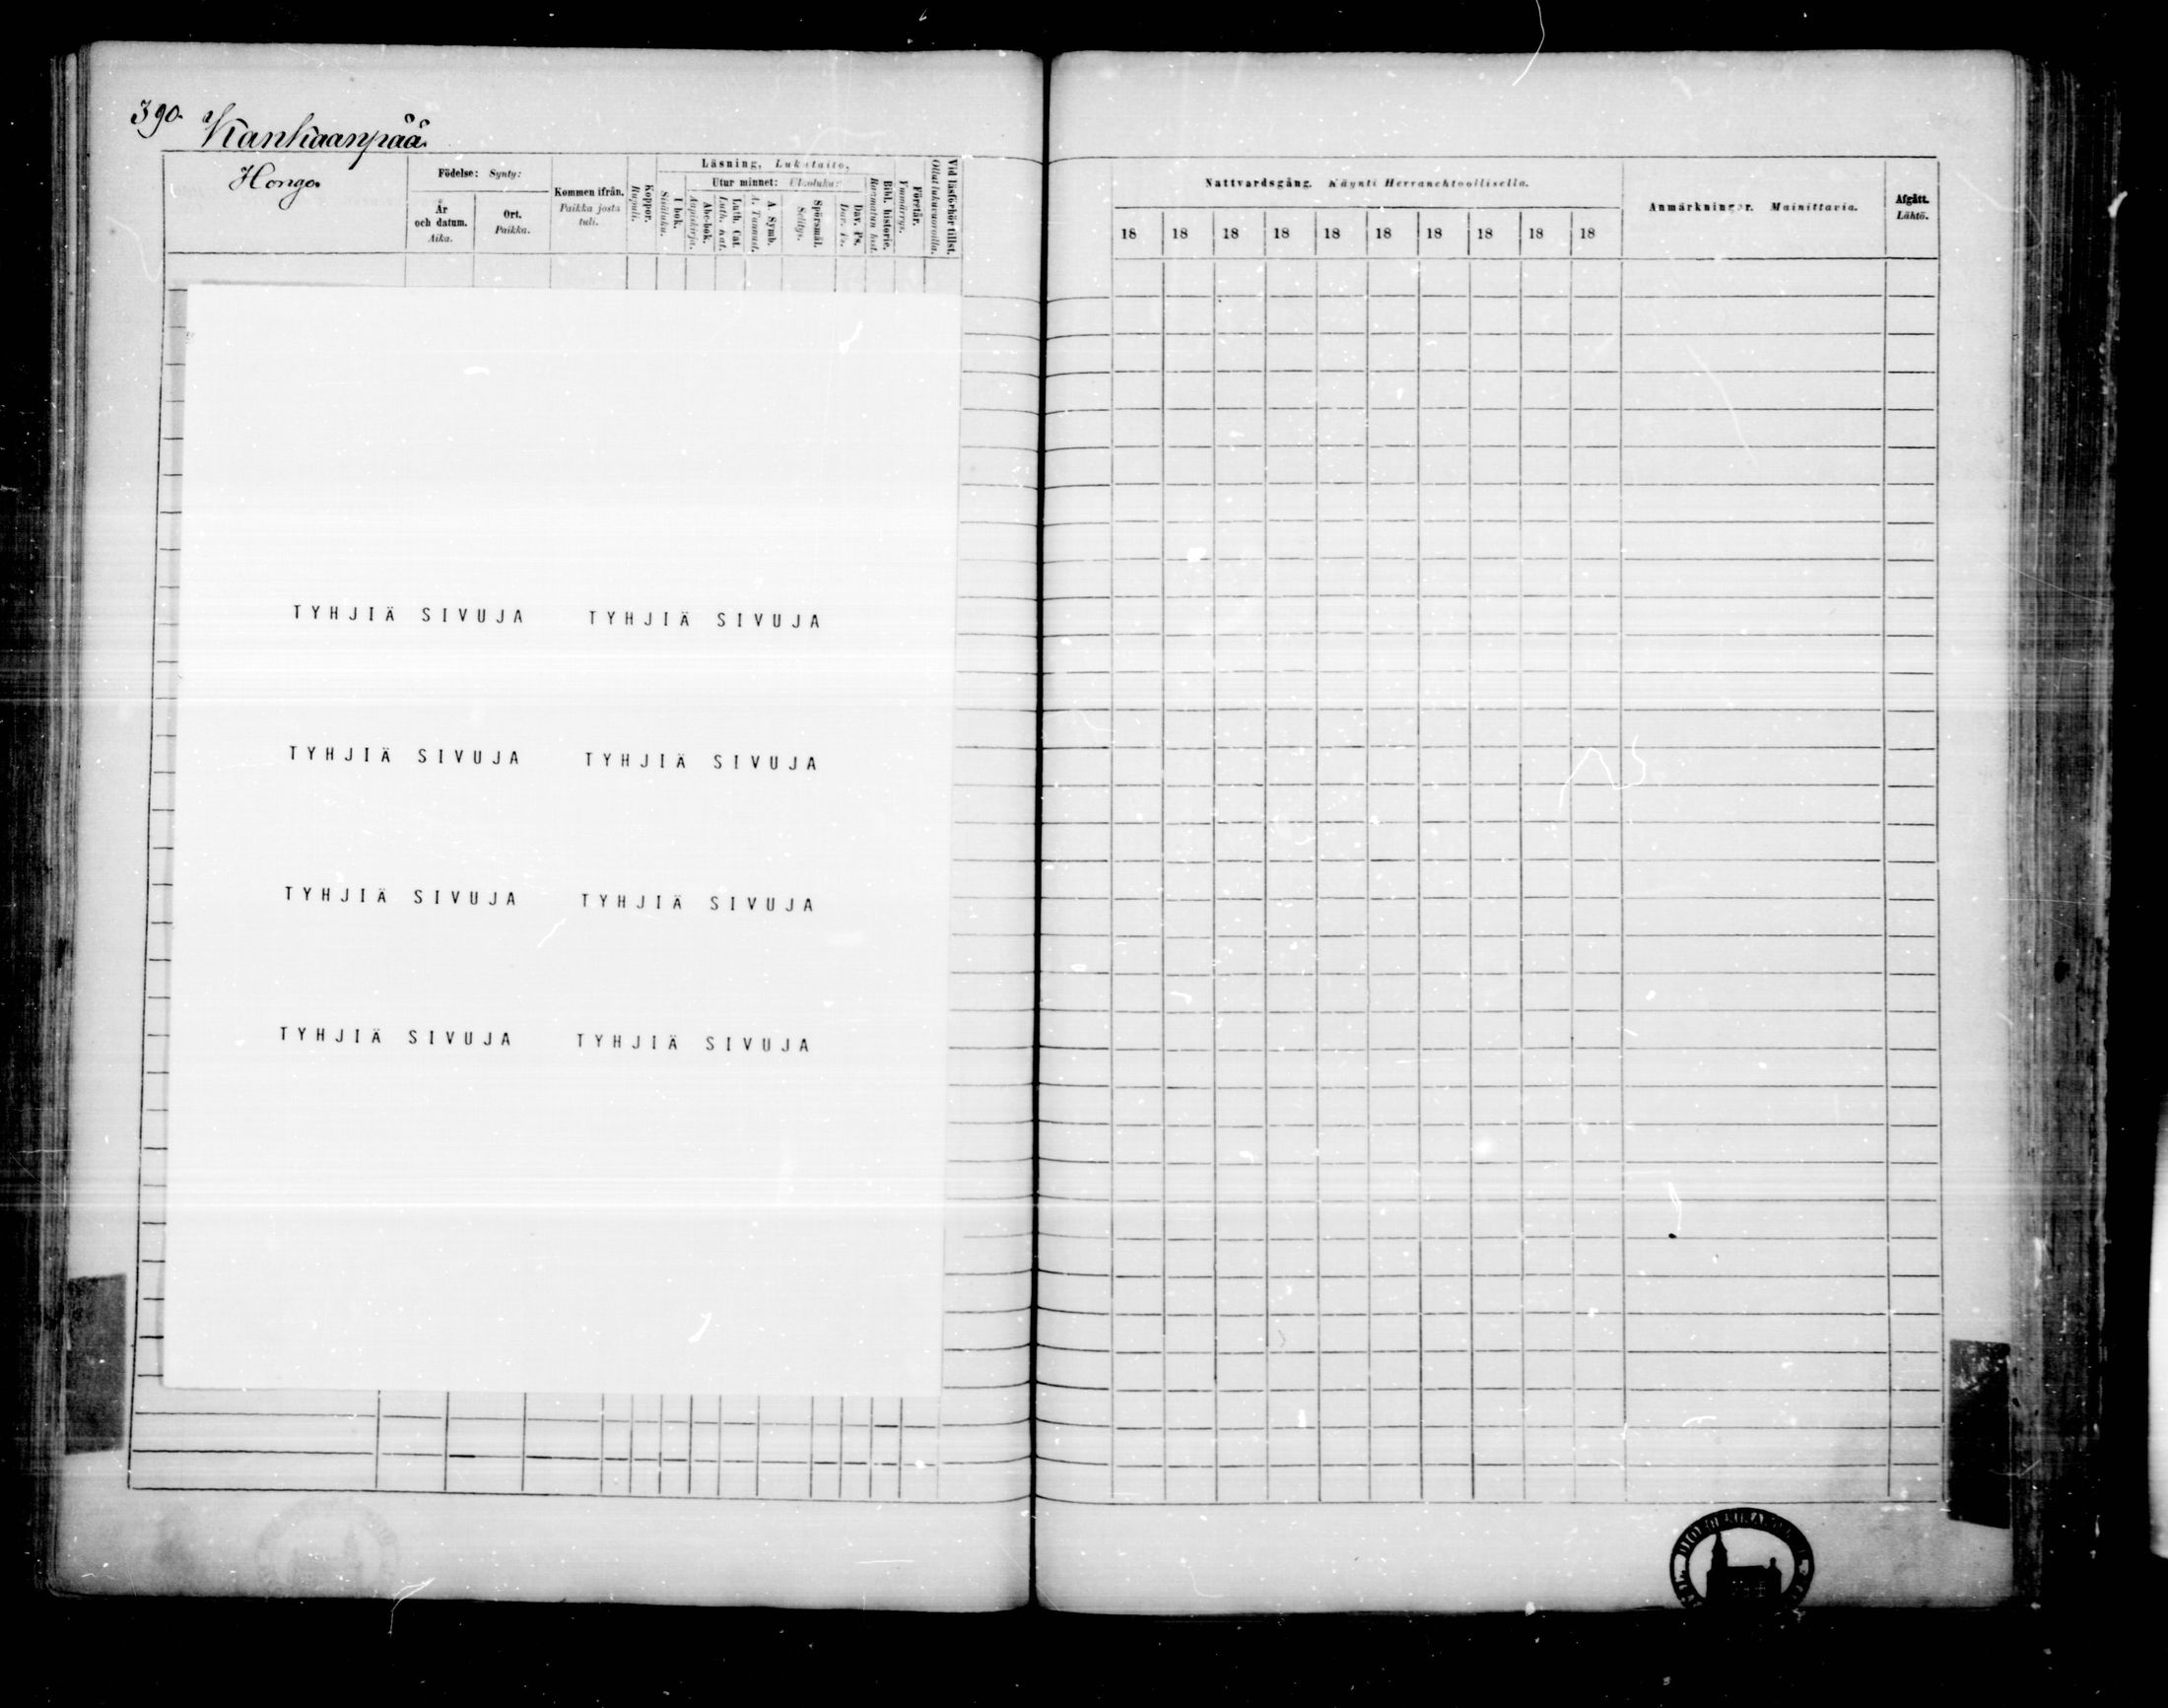 390.
Kankaanpää.
Hongo
Födelse: Synty:
År
och datum.
Aika.
Ort.
Paikka.
Kommen ifrån.
Paikka josta
tuli.
Koppor.
Rupuli.
Läsning, Lukutaito,
I bok.
Sisäluku.
Utur minnet: Ulkoluku:
Abc-bok.
Aapiskirja.
Luth. Cat.
Luth. Kat.
A. Symb.
A. Tunnust.
Spörsmål.
Selitys.
Dav. Ps.
Dav. Ps.
Bibl. historie.
Raamatun hist.
Förstår.
Ymmärrys.
Vid läsförhör tillst.
Ollut lukuvuoroilla.
TYHJIÄ SIVUJA TYHJIÄ SIVUJA
TYHJIÄ SIVUJA TYHJIÄ SIVUJA
TYHJIÄ SIVUJA TYHJIÄ SIVUJA
TYHJIÄ SIVUJA TYHJIÄ SIVUJA
Nattvardsgång. Käynti Herranehtoollisella.
18 18 18 18 18 18 18 18 18 18
Anmärkningar. Mainittavia.
Afgått.
Lähtö.